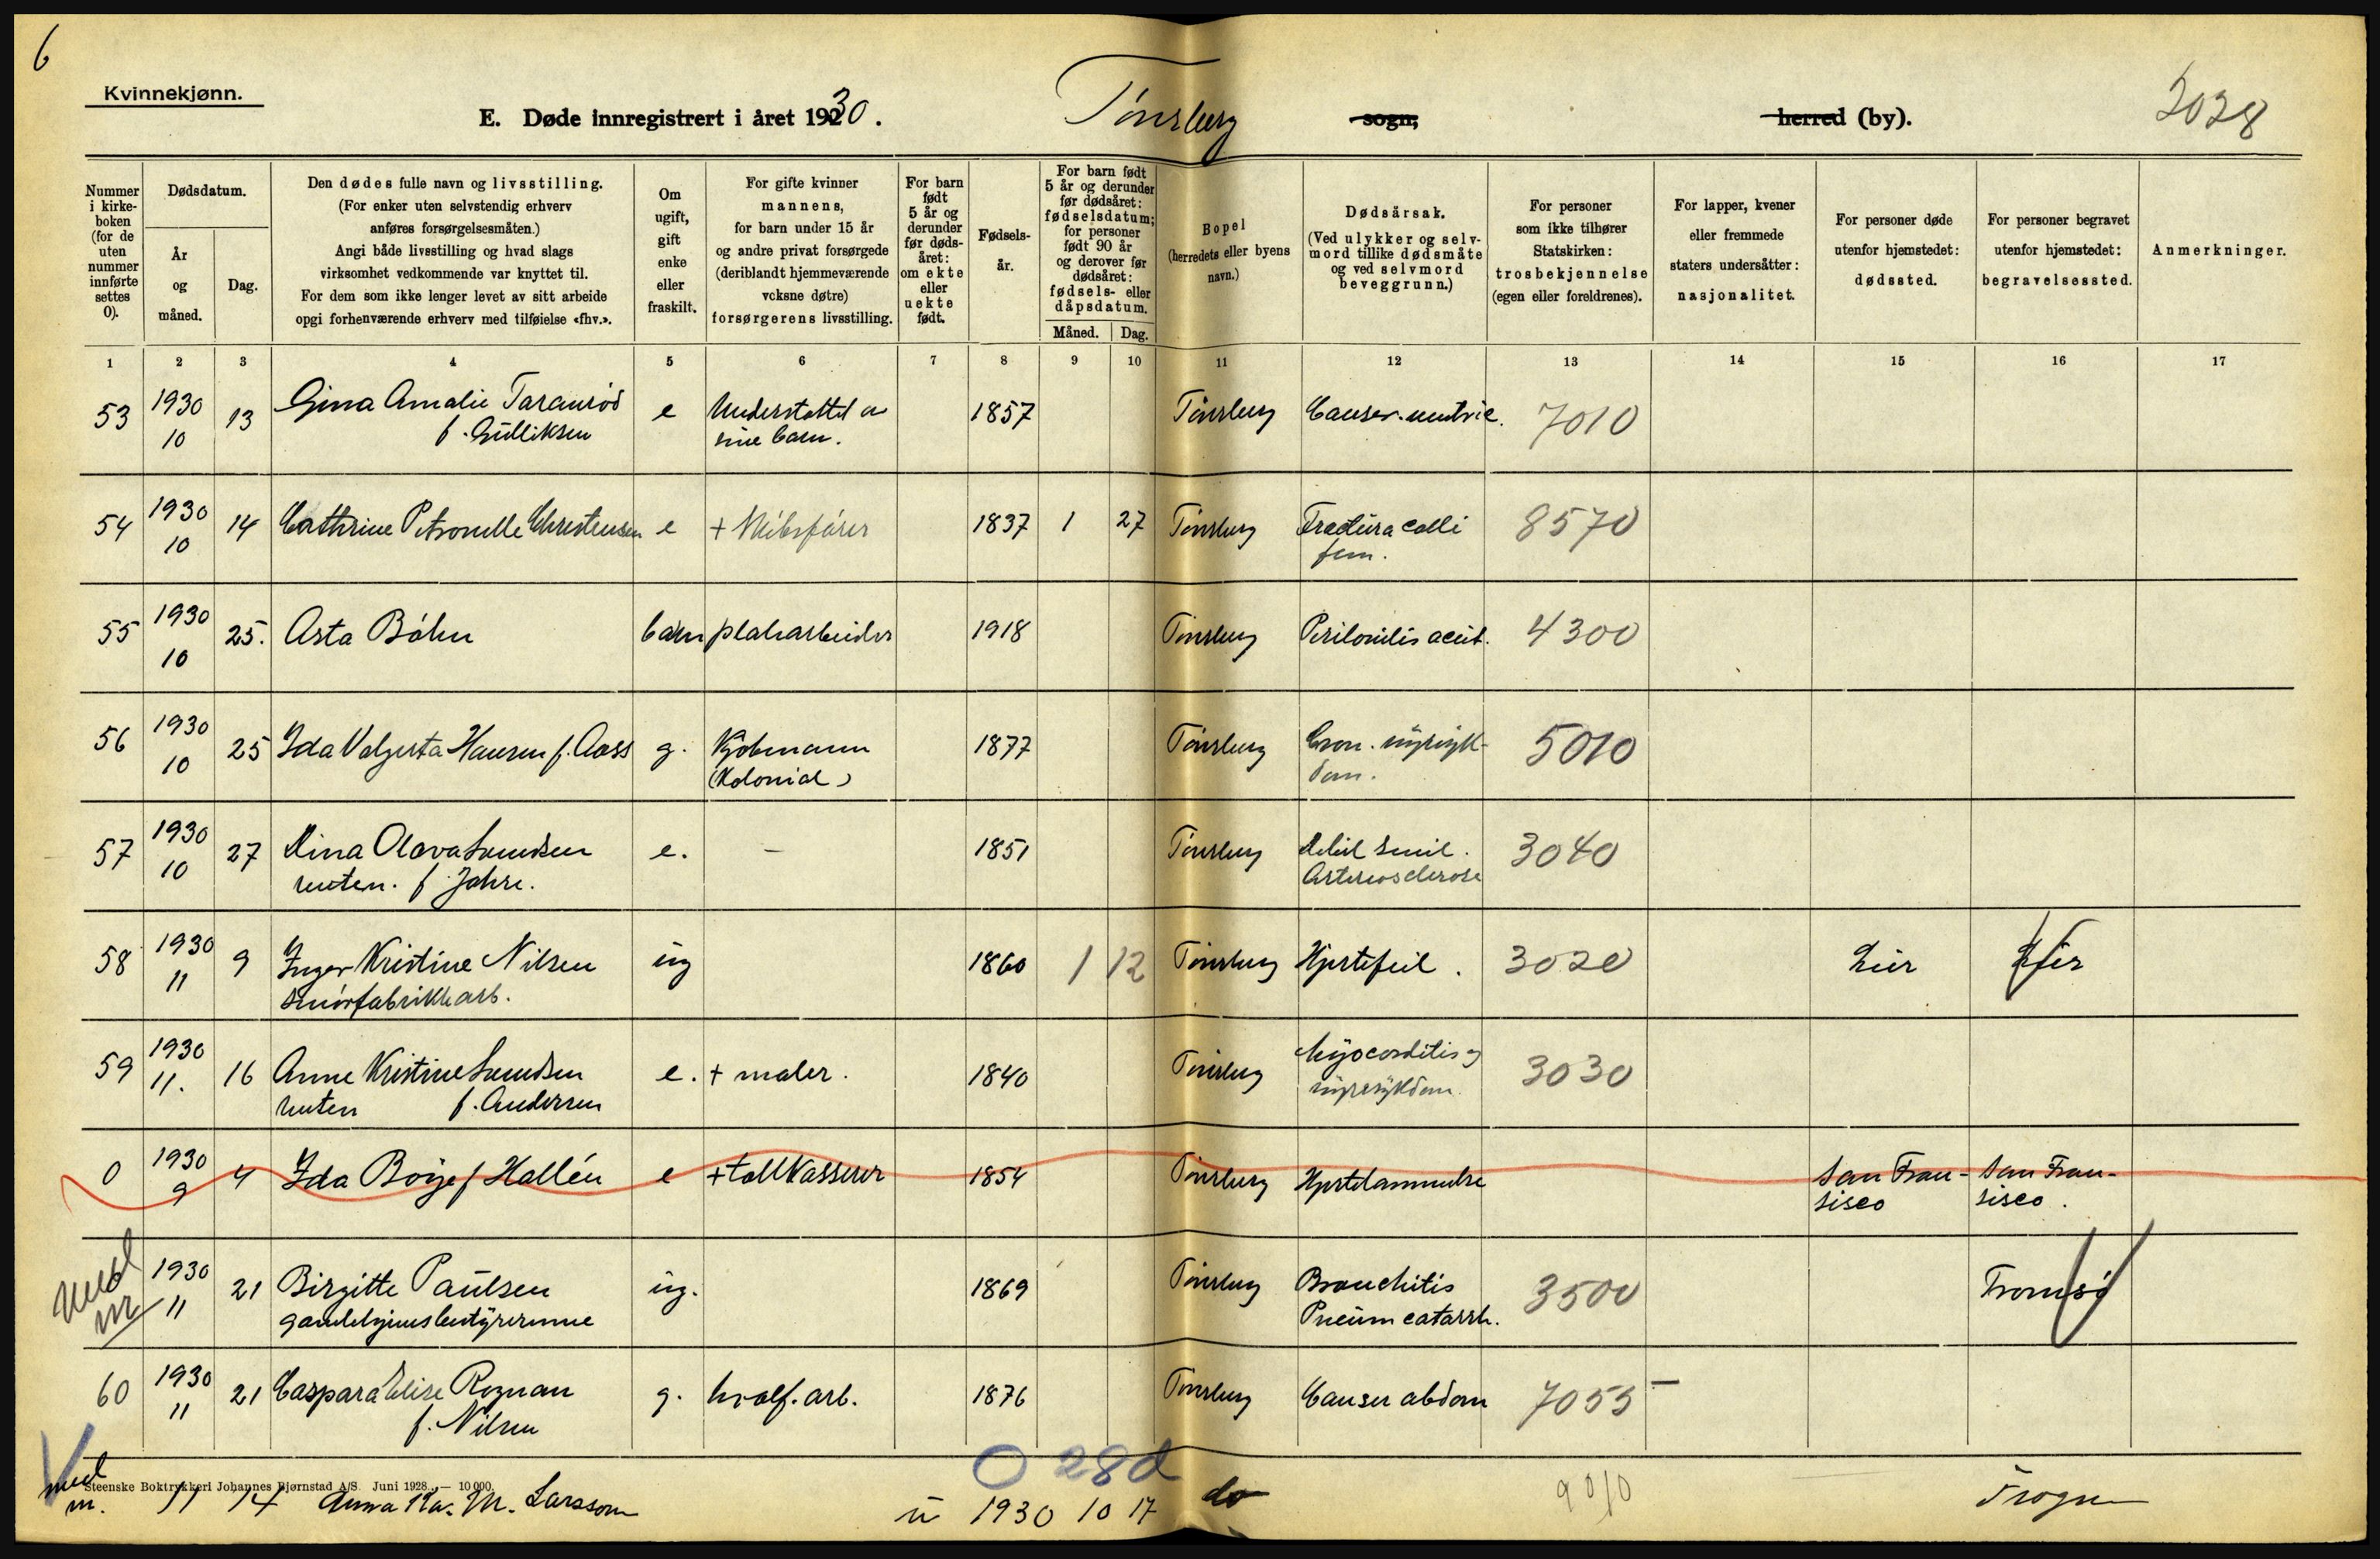 6
Kvinnekjønn.
E. Døde innregistrert i året 1930.
Tønsberg
sogn;
herred (by).
2028
Nummer i kirke-boken (for de uten nummer innførte settes 0).
Dødsdatum.
År og måned.
Dag.
Den dødes fulle navn og livsstilling.
(For enker uten selvstendig erhverv anføres forsørgelsesmåten.)
Angi både livsstilling og hvad slags virksomhet vedkommende var knyttet til.
For dem som ikke lenger levet av sitt arbeide opgi forhenværende erhverv med tilføielse «fhv.».
Om ugift, gift enke eller fraskilt.
For gifte kvinner mannens, for barn under 15 år og andre privat forsørgede (deriblandt hjemmeværende voksne døtre) forsørgerens livsstilling.
For barn født 5 år og derunder før døds-året: om ekte eller uekte født.
Fødsels-år.
For barn født 5 år og derunder før dødsåret: fødselsdatum; for personer født 90 år og derover før dødsåret: fødsels- eller dåpsdatum.
Måned.
Dag.
Bopel (herredets eller byens navn.)
Dødsårsak.
(Ved ulykker og selv-mord tillike dødsmåte og ved selvmord beveggrunn.)
For personer som ikke tilhører Statskirken: trosbekjennelse (egen eller foreldrenes).
For lapper, kvener eller fremmede staters undersåtter: nasjonalitet.
For personer døde utenfor hjemstedet: dødssted.
For personer begravet utenfor hjemstedet: begravelsessted.
Anmerkninger.
1 2 3 4 5 6 7 8 9 10 11 12 13 14 15 16 17
53 1930 10 13 Gina Amalie Taranrød e Understøttet av 1857 Tønsberg 7010
f. Gulliksen sine barn.
54 1930 10 14 Cathrine Petronelle Christensen e + 1837 1 27 Tønsberg Fractura colli 8570
fem.
55 1930 10 25. Asta Bøhn barn platearbeider 1918 Tønsberg Peritonitis acut. 4300
56 1930 10 25 Ida Valgerta Hansen f. Aass g. Kjøbmann 1877 Tønsberg Cron. nyresyk- 5010
(Kolonial) dom.
57 1930 10 27 Dina Olava Svendsen e. — 1851 Tønsberg Debil senil. 3040
renten. f. Jahre. Arteriosclerose
58 1930 11 9 Inger Kristine Nilsen ug 1860 1 12 Tønsberg Hjertefeil. 3020 Lier Lier
smørfabrikkarb.
59 1930 11. 16 Anne Kristine Svendsen e. + maler. 1840 Tønsberg Myocarditis og 3030
renten f. Andersen nyresykdom.
0 1930 9 4 Ida Bøije f Hallén e + tollkasserer 1854 Tønsberg Hjertelammelse San Fran- San Fran-
sisco sisco.
1930 11 21 Birgitte Paulsen ug. 1869 Tønsberg Bronchitis 3500 Tromsø
gamlehjemsbestyrerinne Pneum catarrh.
60 1930 11 21 Caspara Elise Rognan g. hvalf. arb. 1876 Tønsberg Canser abdom 7055
f. Nilsen
Steenske Boktrykkeri Johannes Bjørnstad A/S. Juni 1928. — 10 000.
O 28d
11 14 Anna Ka. M. Larsson u 1930 10 17 do 9010 Frogn